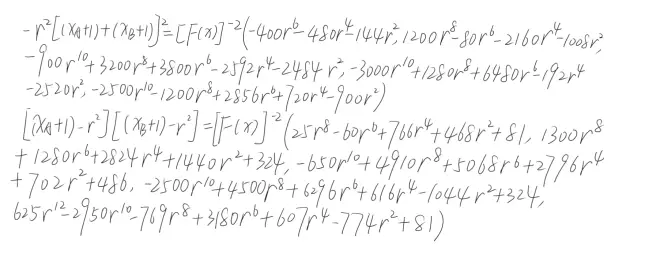 -r²[(x_A+1)+(x_B+1)]²=[F(x)]⁻²(-400r⁶-480r⁴-144r², 1200r⁸-80r⁶-2160r⁴-1008r²,
-900r¹⁰+3200r⁸+3800r⁶-2592r⁴-2484r², -3000r¹⁰+1280r⁸+6480r⁶-192r⁴
-2520r², -2500r¹⁰-1200r⁸+2856r⁶+720r⁴-900r²)
[(x_A+1)-r²][(x_B+1)-r²]=[F(x)]⁻²(25r⁸-60r⁶+766r⁴+468r²+81, 1300r⁸
+1280r⁶+2824r⁴+1440r²+324, -650r¹⁰+4910r⁸+5068r⁶+2796r⁴
+702r²+486, -2500r¹⁰+4500r⁸+6296r⁶+616r⁴-1044r²+324,
625r¹²-2950r¹⁰-769r⁸+3180r⁶+607r⁴-774r²+81)